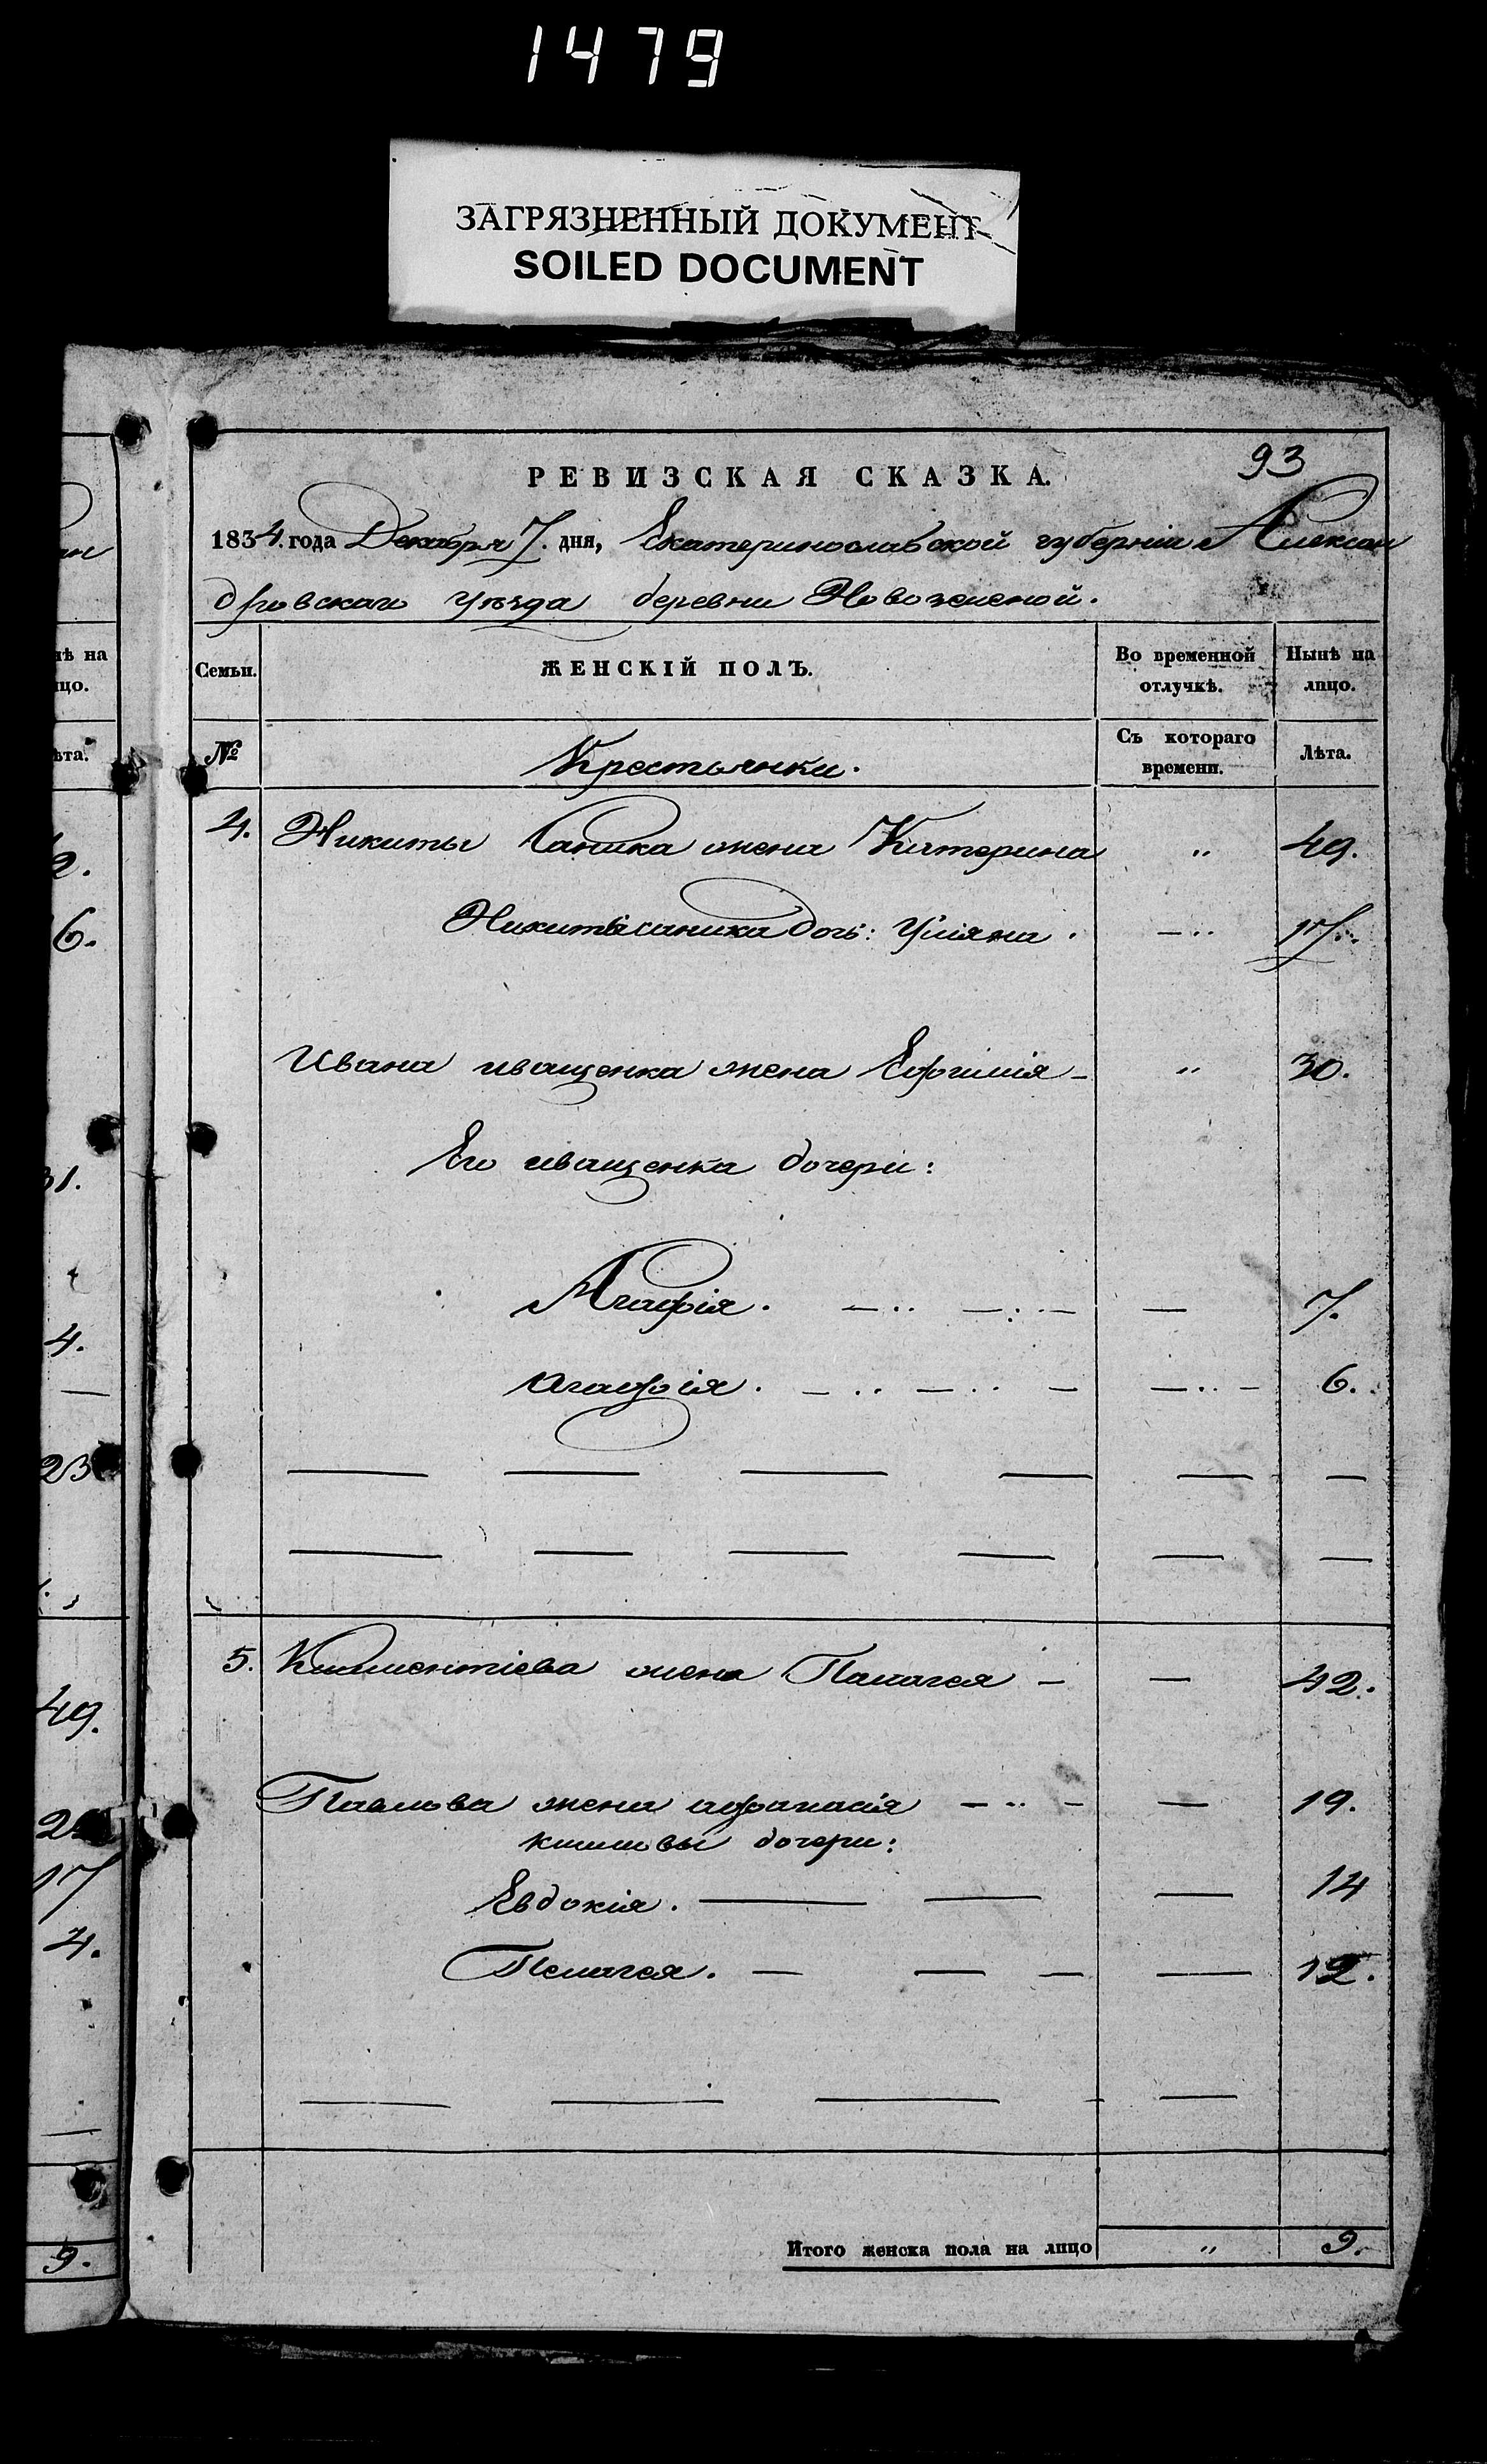 1479
ЗАГРЯЗНЕННЫЙ ДОКУМЕНТ
SOILED DOCUMENT
93
РЕВИЗСКАЯ СКАЗКА.
1834. года Декабря 7. дня, Екатеринославской губерніи Алексан
дровскаго уѣзда деревни Новозеленой.
Семьи. ЖЕНСКІЙ ПОЛЪ. Во временной отлучкѣ. Нынѣ на лицо.
№ Крестьянки. Съ котораго времени. Лѣта.
4. Никиты жена Катерина " 49.
Никиты дочь: Ульяна. 17.
Ивана иващенка жена Ефимія " 30.
Его иващенка дочери:
Агафія. 7.
Агафія. 6.
5. Климентіева жена Палагея 42.
Павлова жена афанасія 19.
климовы дочери:
Евдокія. 14
Пелагея. 12.
Итого женска пола на лицо " 9.
нѣ на
цо.
ѣта.
2.
6.
31.
4.
23
49.
17
4.
9.